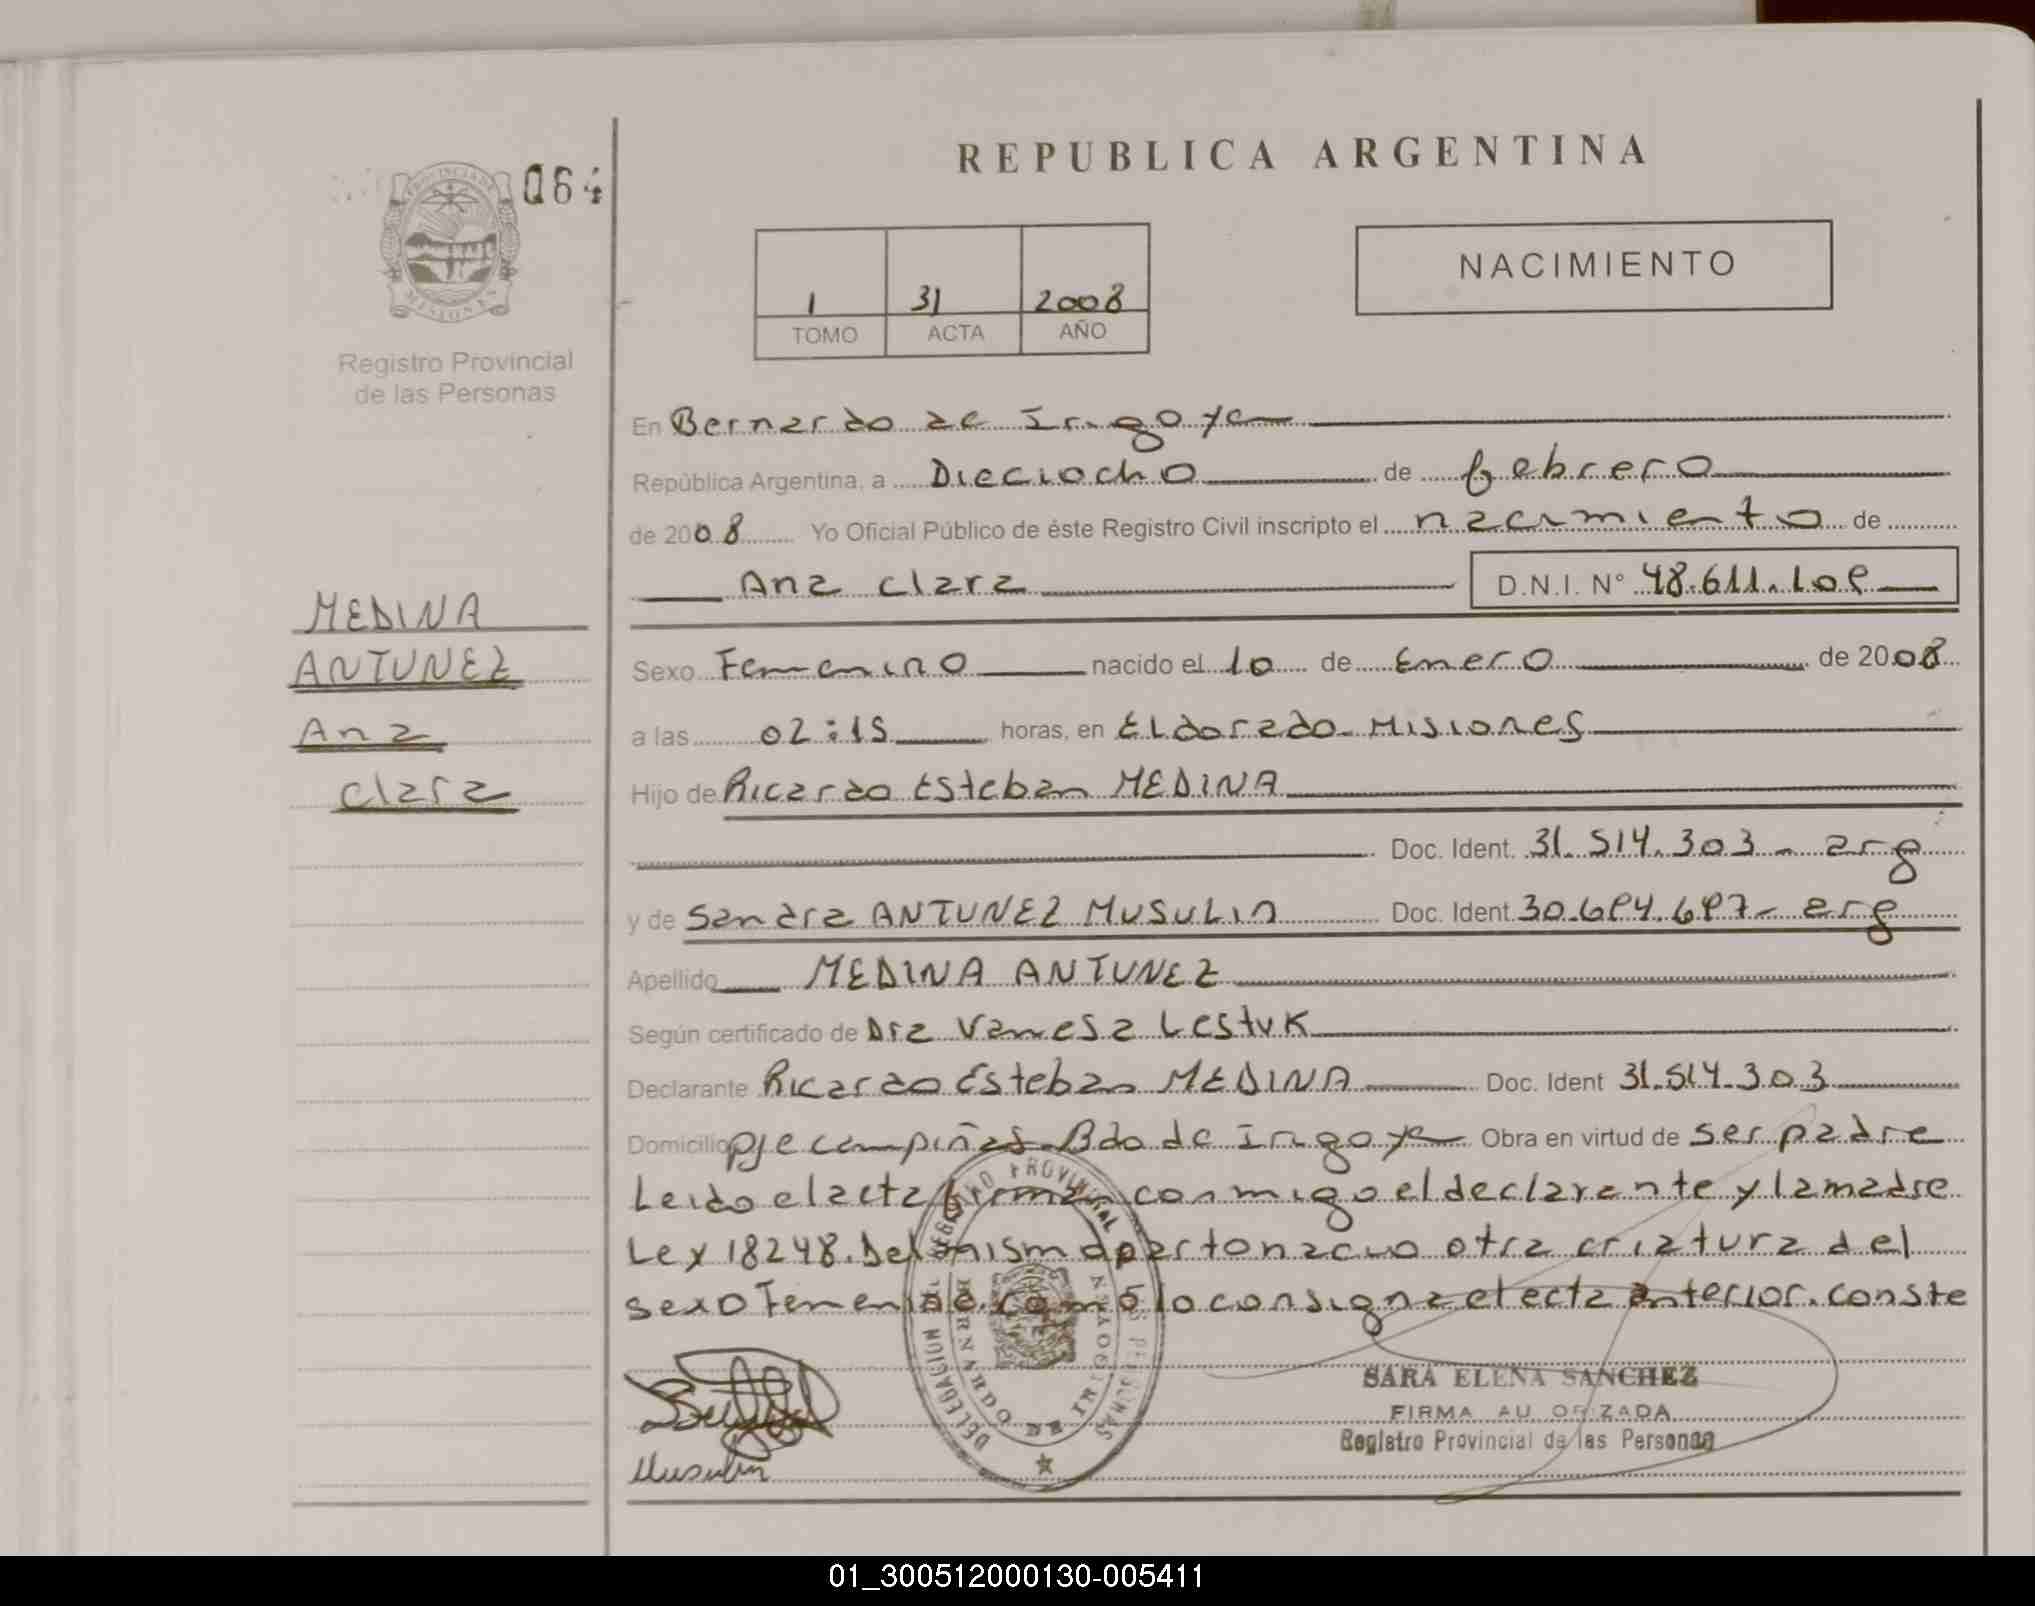 REPUBLICA ARGENTINA
064
PROVINCIA DE
MISIONES
Registro Provincial
de las Personas
1 31 2008
TOMO ACTA AÑO
NACIMIENTO
En Bernardo de Irigoyen
República Argentina, a Dieciocho de febrero
de 2008 Yo Oficial Público de éste Registro Civil inscripto el nacimiento de
Ana Clara D.N.I. N° 48.611.109
MEDINA
ANTUNEZ
Ana
Clara
Sexo Femenino nacido el 10 de Enero de 2008
a las 02:15 horas, en ELdorado - Misiones
Hijo de Ricardo Esteban MEDINA
Doc. Ident. 31.514.303 - arg
y de Sandra ANTUNEZ MUSULIN Doc. Ident. 30.694.697 - arg
Apellido MEDINA ANTUNEZ
Según certificado de Dra Vanesa Lestuk
Declarante Ricardo Esteban MEDINA Doc. Ident 31.514.303
Domicilio pje campiñas - Bdo de Irigoyen Obra en virtud de ser padre
Leido el acta firman conmigo el declarante y la madre
Ley 18248. Del mismo parto nacio otra criatura del
sexo Femenino. como lo consigna el acta anterior. conste
REGISTRO PROVINCIAL DE LAS PERSONAS
DELEGACION
BERNARDO DE IRIGOYEN
SARA ELENA SANCHEZ
FIRMA AUTORIZADA
Registro Provincial de las Personas
Musulin
01_300512000130-005411